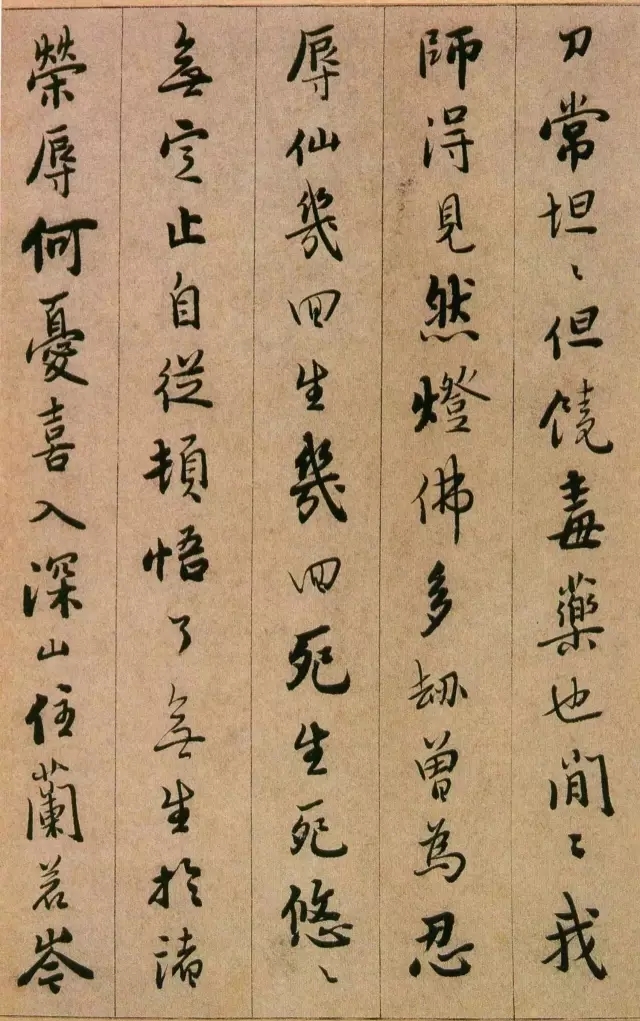 刀常坦〻但饒毒藥也閒〻我
師得見然燈佛多劫曾為忍
辱仙幾回生幾回死生死悠〻
無定止自從頓悟了無生於諸
榮辱何憂喜入深山住蘭若岑